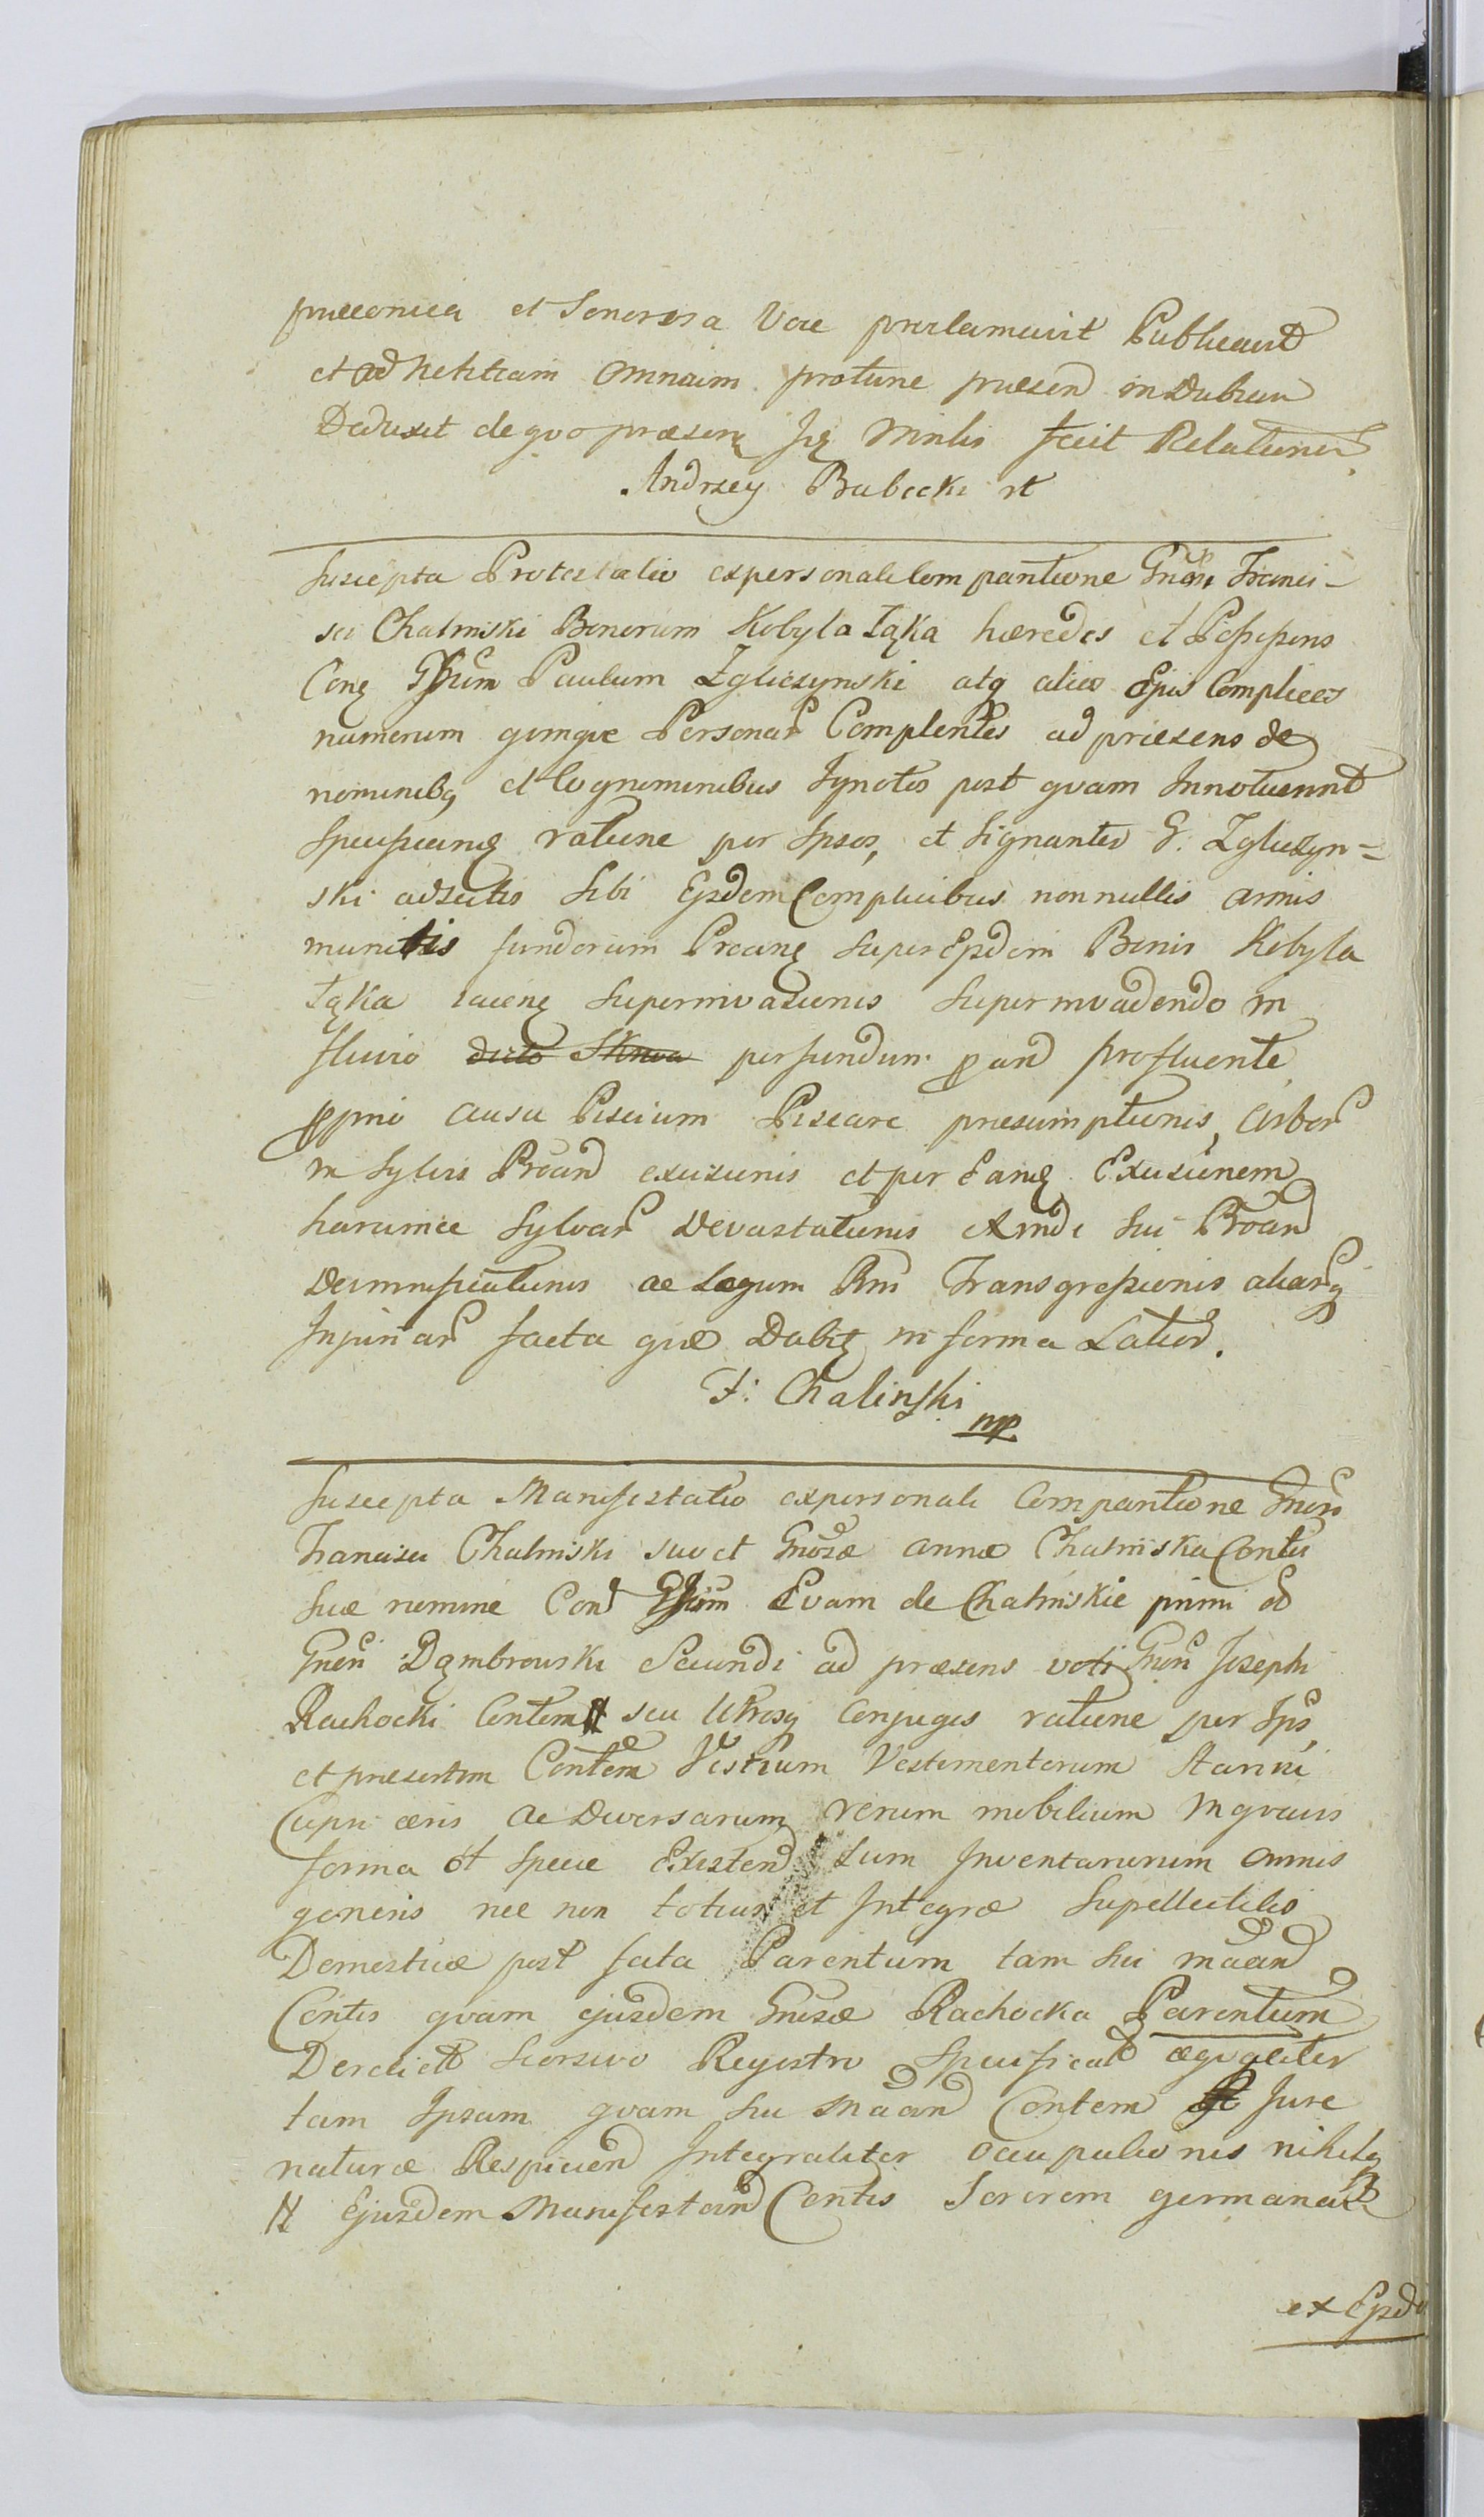 præconica et Sonorosa Voce proclamavit Publicavit
et ad Notitiam Omnium protunc præsen in Dubiam
Deduxit de quo præsens Jtq Minlis fecit Relationem
Andrzey Babecki rt
Suscepta Protestatio ex personali Comparitione Gnosi Franci-
sci Chalinski Bonorum Kobyla Łąka hæredis et Possessoris
Con Gsum Paulum Zgliczynski atq alios Ejus Complices
numerum quinque Personar Complentes ad præsens de
nominibq et Cognominibus Ignotos post quam Innotuerint
Specificanq ratione per Ipsos, et Signanter G. Zgliczyn=
ski adscitis Sibi Ejsdem Complicibus nonnullis armis
munitis fundorum Proanq super Ejsdem Bonis Kobyla
Łąka jacenq Superinvasionis Superinvadendo in
fluvio dicto Skrwa per fundum pand profluente
ppio ausu Piscium Piscare præsumptionis, Arbor
in Sylvis Proand excisionis et per Eanq Excisionem
harumce Sylvar Devastationis et inde Sui Proand
Damnificationis ac Legum Rni Transgressionis aliarq
Injuriar facta quæ Dabitq in forma Latior.
F: Chalinski
mp
Suscepta Manifestatio ex personali Comparitione Gnosi
Francisci Chalinski suo et Gnosæ Annæ Chalinska Contis
Suæ nomine Con Gsam Evam de Chalinskie primi od
Gnosi Dąmbrowski Secundi ad præsens voti Gnosi Josephi
Rachocki Contem # seu Uxoris Conjugis ratione per Ips
et præsertim Contem Vestium Vestimentorum Stanni
Cupri æris ac Diversarum rerum mobilium in quavis
forma et Specie Existen tum Inventariorum omnis
generis nec non totius et Integræ Supellectilis
Domesticæ post fata Parentum tam Sui maand
Contis quam ejusdem Gnosæ Rachocka Parentum
Derelict Seorsivo Regestro Specificat æqualiter
tam Ipsam quam Su Maand Contem Jure
naturæ Respicien Integraliter occupationis nihilq
# Ejusdem Manifestand Contis Sororem germanam
ex Ejsde